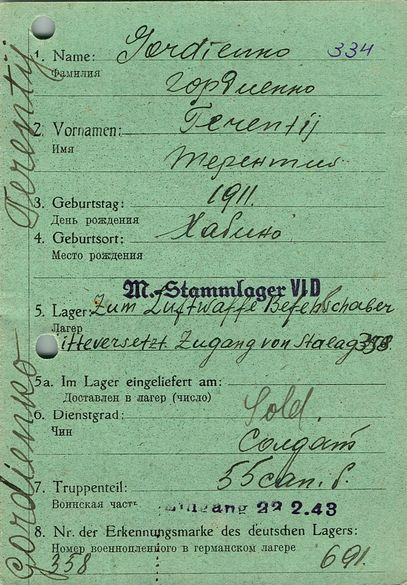 334
1. Name: Gordienko
Фамилия
гордиенко
2. Vornamen: Terentij
Имя
терентий
3. Geburtstag: 1911.
День рождения
4. Geburtsort:
Место рождения
M.-Stammlager VI D
5. Lager: Zum Luftwaffe Befehlshaber
Лагер
Mitte versetzt Zugang von Stalag 358
5a. Im Lager eingeliefert am:
Доставлен в лагер (число)
6. Dienstgrad: Sold.
Чин
Солдат
7. Truppenteil: 55 сап. б.
Воинская часть
Eingang 22 2.43
8. Nr. der Erkennungsmarke des deutschen Lagers:
Номер военнопленного в германском лагере
358 691.
Gordienko Terentij